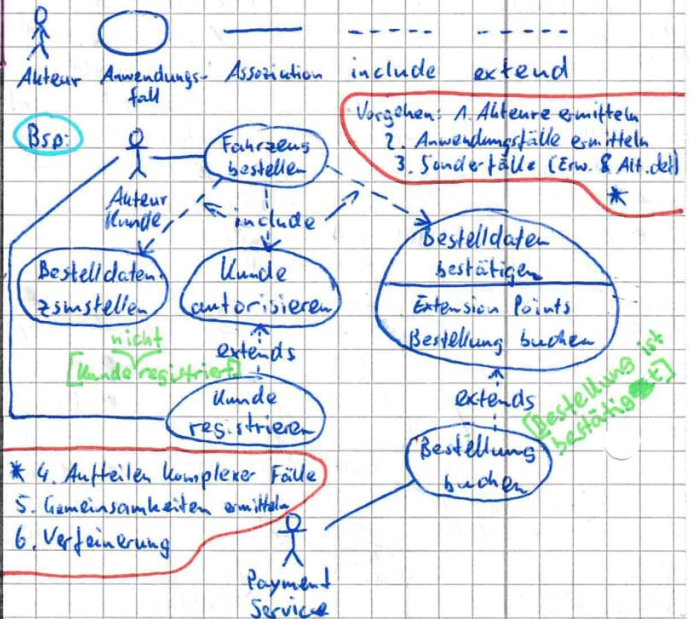 Akteur Anwendungs- Assoziation include extend
fall
Vorgehen: 1. Akteure ermitteln
2. Anwendungsfälle ermitteln
3. Sonderfälle (Erw. & Alt. def)
*
Bsp:
Fahrzeug
bestellen
Auteur
Kunde
include
Bestelldaten
zsmstellen
Kunde
autorisieren
Bestelldaten
bestätigen
Extension Points
Bestellung buchen
nicht
[Kunde registriert]
extends
Kunde
registrieren
extends
[Bestellung ist
bestätigt]
Bestellung
buchen
* 4. Aufteilen komplexer Fälle
5. Gemeinsamkeiten ermitteln
6. Verfeinerung
Payment
Service